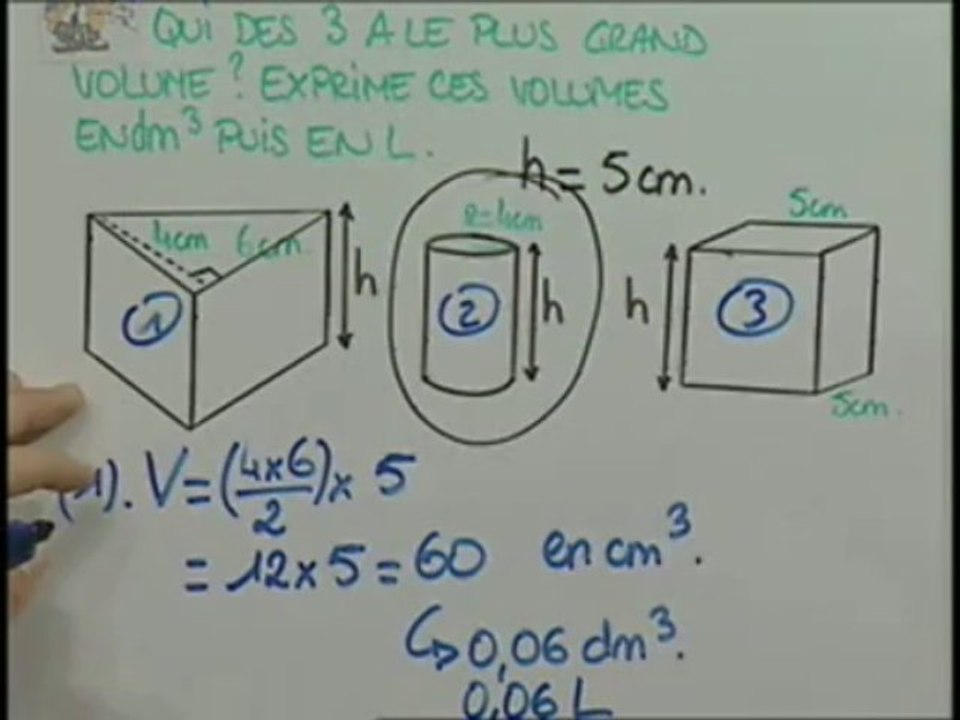 QUI DES 3 A LE PLUS GRAND
VOLUME ? EXPRIME CES VOLUMES
EN dm³ PUIS EN L.
h = 5 cm.
4cm 6cm
h
1
h
2
h
3
5cm
5cm.
(1). V = (4x6/2) x 5
= 12 x 5 = 60 en cm³.
↳ 0,06 dm³.
0,06 L